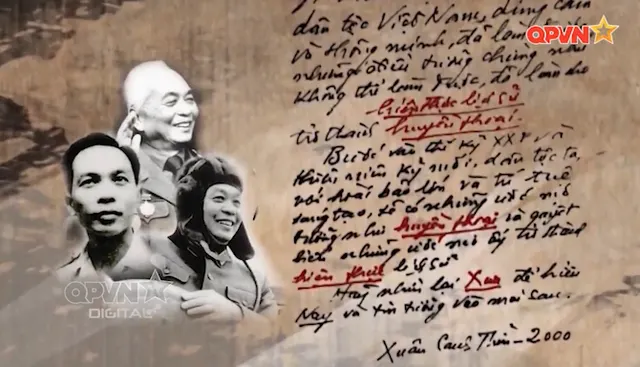 QPVN
dân tộc Việt Nam, dũng cảm
và thông minh, đã làm
những điều tưởng chừng như
không thể làm được, đã làm cho
hiện thực lịch sử
trở thành huyền thoại.
Bước vào thế kỷ XXI và
thiên niên kỷ mới, dân tộc ta,
với hoài bão lớn và trí tuệ
sáng tạo, sẽ có những ước mơ
tưởng như huyền thoại và quyết
biến những ước mơ ấy trở thành
hiện thực lịch sử
Hãy nhìn lại Xưa để hiểu
Nay và tin tưởng vào mai sau.
Xuân Canh Thìn - 2000
QPVN
DIGITAL